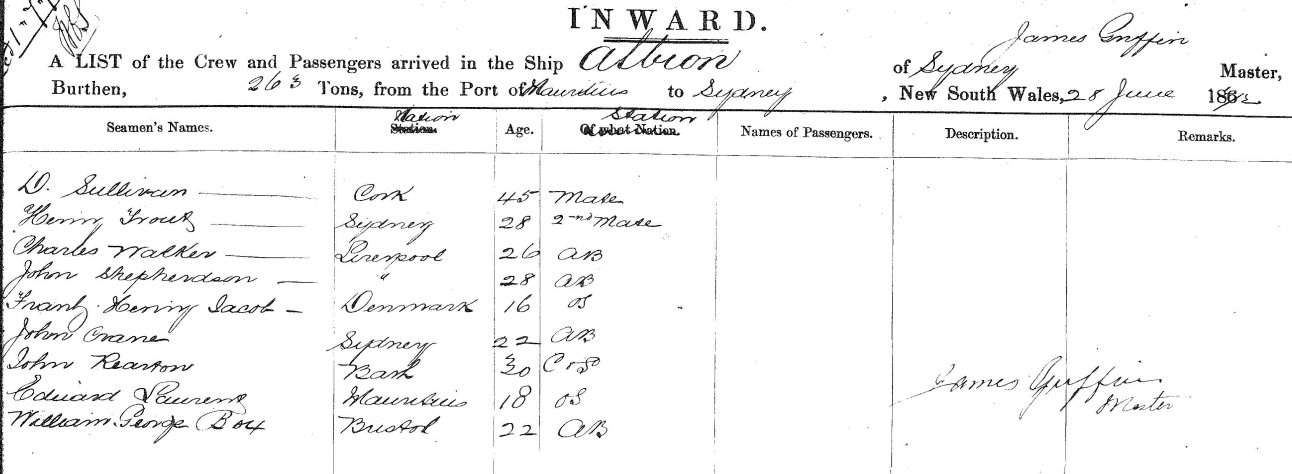 INWARD.
James Griffin
A LIST of the Crew and Passengers arrived in the Ship Albion of Sydney Master,
Burthen, 263 Tons, from the Port of Mauritius to Sydney , New South Wales, 28 June 186
Nation Station
Seamen's Names. Station. Age. Of what Nation. Names of Passengers. Description. Remarks.
D. Sullivan Cork 45 Mate
Henry Sydney 28 2nd Mate
Charles Walker Liverpool 26 AB
John Shepherdson " 28 AB
Frantz Henry Jacob Denmark 16 OS
John Crane Sydney 22 AB
John Rearton 30 C & S
James Griffin
Eduard Laurent Mauritius 18 OS
Master
William George Box Bristol 22 AB